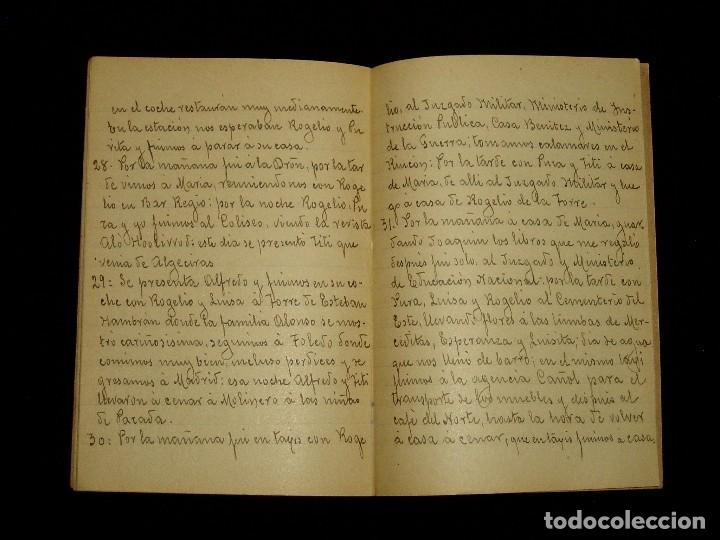 en el coche restaurán muy medianamente.
En la estación nos esperaban Rogelio y Pu
rita y fuimos á parar á su casa.
28- Por la mañana fui á la Drón, por la tar
de vimos a Maria, reuniendonos con Roge
lio en Bar Regio: por la noche Rogelio, Pu
ra y yo fuimos al Coliseo, viendo la revista
Aló Hoolivvod: este dia se presentó Titi que
venia de Algeciras
29: Se presenta Alfredo y fuimos en su co-
che con Rogelio y Luisa á Torre de Esteban
Hambrán donde la familia Alonso se mos-
tró cariñosisima, seguimos á Toledo donde
comimos muy bien, incluso perdices y re
gresamos á Madrid: esa noche Alfredo y Titi
llevaron a cenar á Molinero á las niñas
de Pacada.
30: Por la mañana fui en taxis con Roge
lio, al Juzgado Militar, Ministerio de Ins-
trucción Publica, Casa Benitez y Ministerio
de la Guerra; tomamos calamares en el
Rincón: Por la tarde con Pura y Titi á casa
de Maria, de alli al Juzgado Militar y lue
go a casa de Rogelio de la Torre.
31. Por la mañana á casa de Maria, guar
dando Joaquin los libros que me regaló
despues fui solo, al Juzgado y Ministerio
de Educación Nacional: por la tarde con
Pura, Luisa y Rogelio al Cementerio del
Este, llevando flores á las tumbas de Mer-
ceditas, Esperanza y Luisita; dia de agua
que nos llenó de barro; en el mismo taxis
fuimos á la agencia Cañol para el
transporte de los muebles y después al
café del Norte, hasta la hora de volver
á casa á cenar, que en taxis fuimos a casa.
todocoleccion